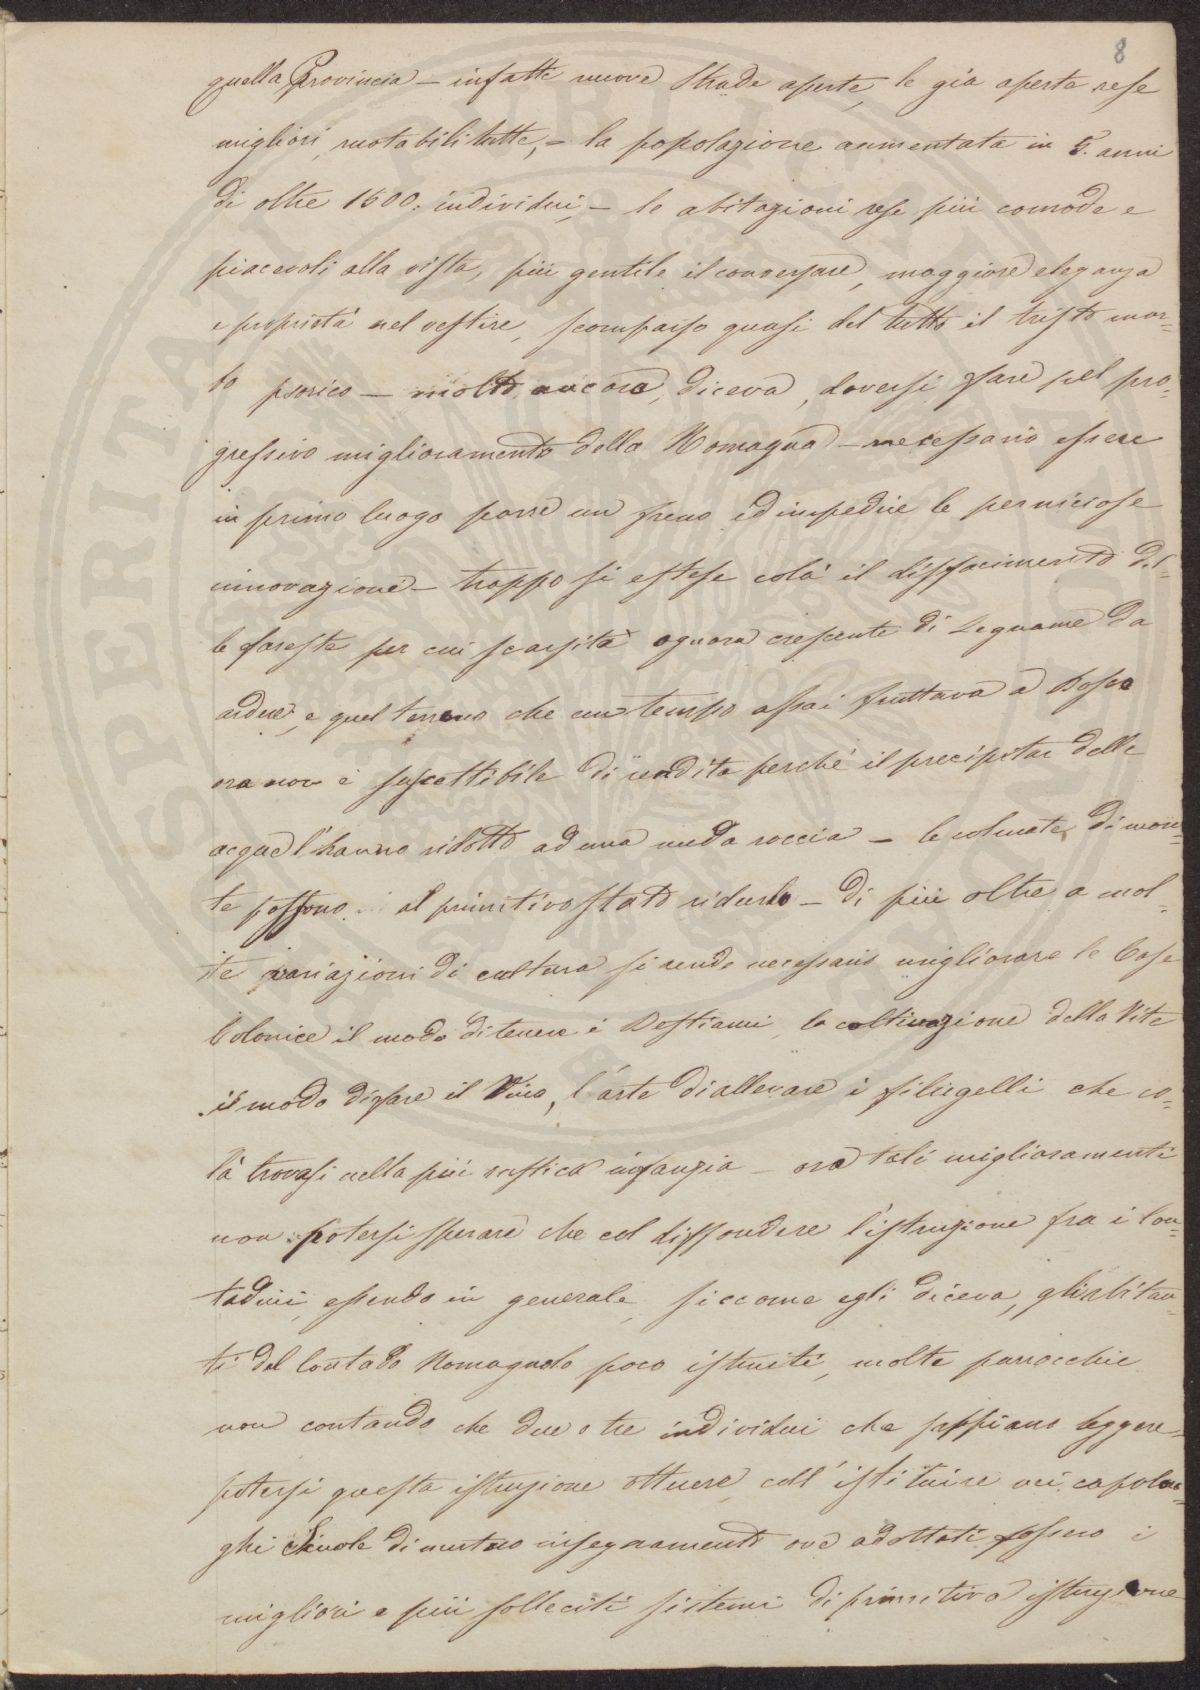 8
quella Provincia – infatti nuove Strade aperte, le già aperte rese
migliori, ruotabili tutte, – la popolazione aumentata in 5. anni
di oltre 1500. individui, – le abitazioni rese più comode e
piacevoli alla vista, più gentile il conversare, maggiore eleganza
e proprietà nel vestire, scomparso quasi del tutto il tristo mor=
bo psorico – molto ancora, diceva, doversi fare pel pro=
gressivo miglioramento della Romagna – necessario essere
in primo luogo porre un freno ed impedire le perniciose
innovazione – troppo si estese colà il disfacimento del=
le foreste per cui scarsità ognora crescente di Legname da
ardere, e quel terreno che un tempo assai fruttava a Bosco
ora non è suscettibile di rendita perchè il precipitar delle
acque l'hanno ridotto ad una nuda roccia – le colmate di mon=
te possono al primitivo stato ridurlo – di più oltre a mol=
te variazioni di cultura si rende necessario migliorare le Case
Colonice il modo di tenere i Bestiami, la coltivazione della Vite
il modo di fare il Vino, l'arte di allevare i filugelli che co=
là trovasi nella più rustica infanzia – ora tali miglioramenti
non potersi sperare che col diffondere l'istruzione fra i Con=
tadini, essendo in generale, siccome egli diceva, gli abitan=
ti del Contado Romagnolo poco istruiti, molte parrocchie
non contando che due o tre individui che sappiano leggere,
potersi questa istruzione ottenere coll'istituire nei capoluo=
ghi Scuole di mutuo insegnamento ove adottati fossero i
migliori e più solleciti sistemi di primitiva istruzione
ASPERITATI PUBLICAE